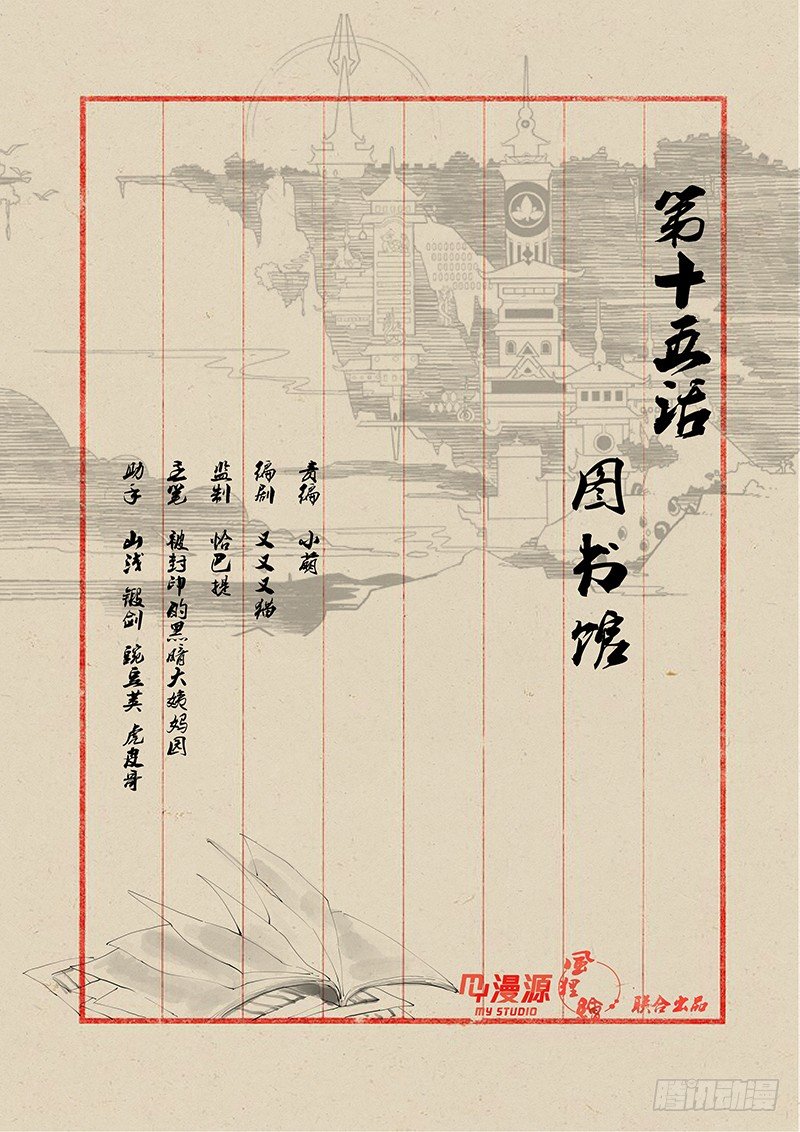 第十五话
图书馆
责编 小萌
编剧 又又又猫
监制 恰巴提
主笔 被封印的黑暗大姨妈园
助手 山浅 锻剑 豌豆荚 虎皮哥
漫源
MY STUDIO
联合出品
腾讯动漫